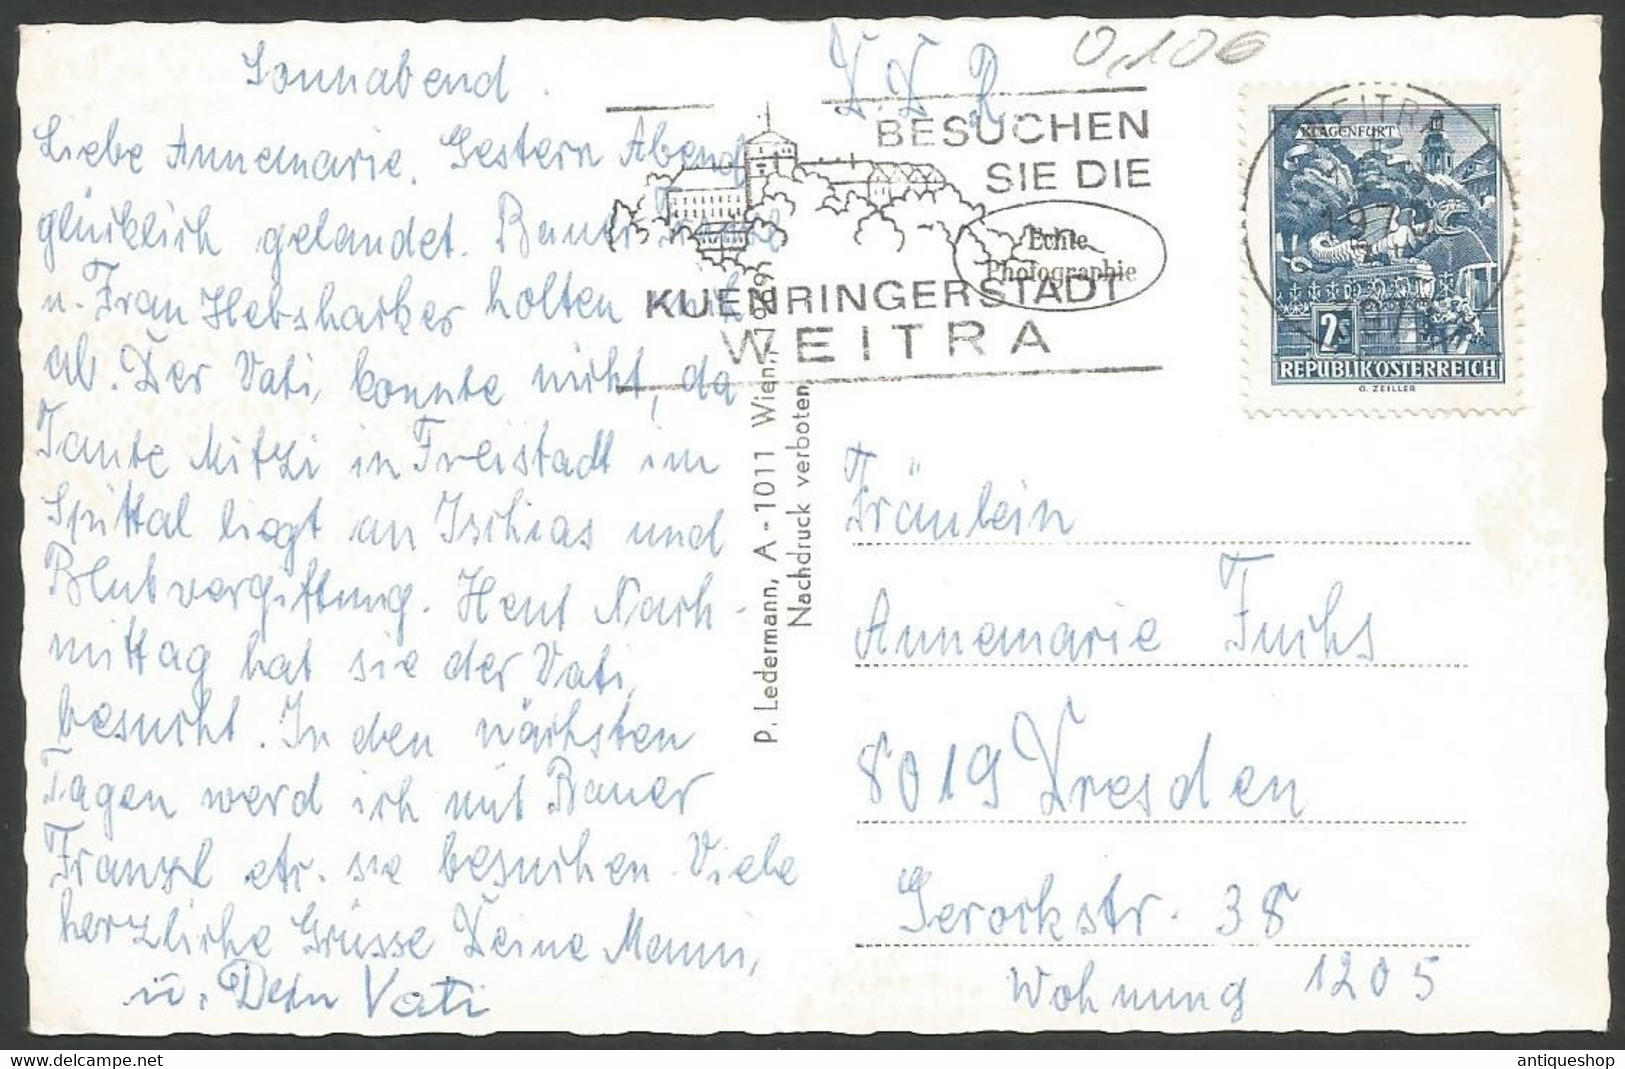 Sonnabend.
Liebe Annemarie. Gestern Abend
glücklich gelandet. Bauer Franzl
u. Frau Hebsharker holten mich
ab. Der Vati, konnte nicht, da
Tante Mitzi in Freistadt im
Spittal liegt an Ischias und
Blutvergiftung. Heut Nach-
mittag hat sie der Vati,
besucht. In den nächsten
Tagen werd ich mit Bauer
Franzl etc. sie besuchen. Viele
herzliche Grüsse Deine Mami,
u. Dein Vati
P. Ledermann, A-1011 Wien, 1969
Nachdruck verboten,
DDR
0,106
BESUCHEN
SIE DIE
KUENRINGERSTADT
WEITRA
Echte
Photographie
WEITRA
1970
KLAGENFURT
2S
REPUBLIK ÖSTERREICH
O. ZEILLER
Fräulein
Annemarie Fuchs
8019 Dresden
Gerockstr. 38
Wohnung 1205
antiqueshop